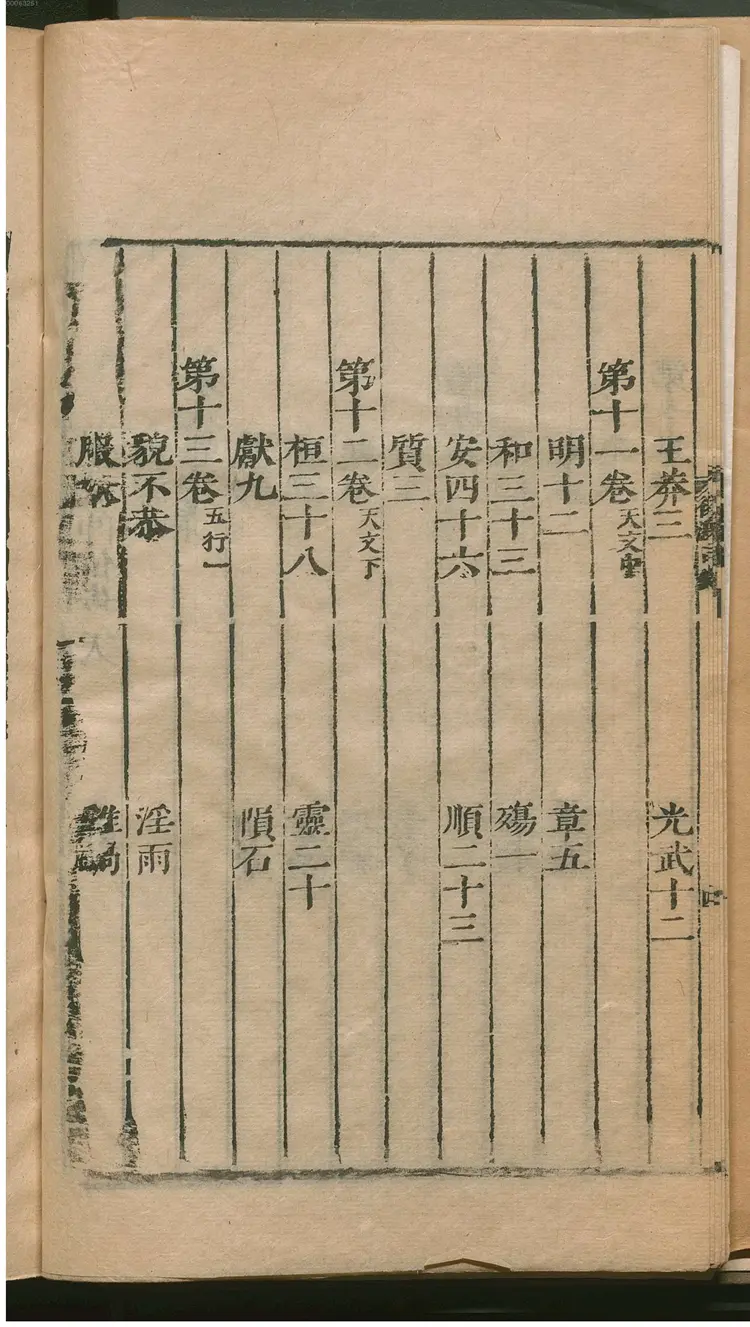 王莽三　光武十二
第十一卷天文中
明十二　章五
和三十三　殤一
安四十六　順二十三
質三
第十二卷天文下
桓三十八　靈二十
獻九　隕石
第十三卷五行一
貌不恭　淫雨
服妖
四